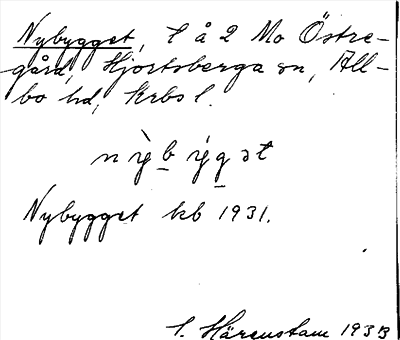 Nybygget, l å 2 Mo Östre-
gård, Hjortsberga sn, All-
bo hd, Krbs l.
nỳb ýgət
Nybygget kb 1931.
S. Härenstam 1933